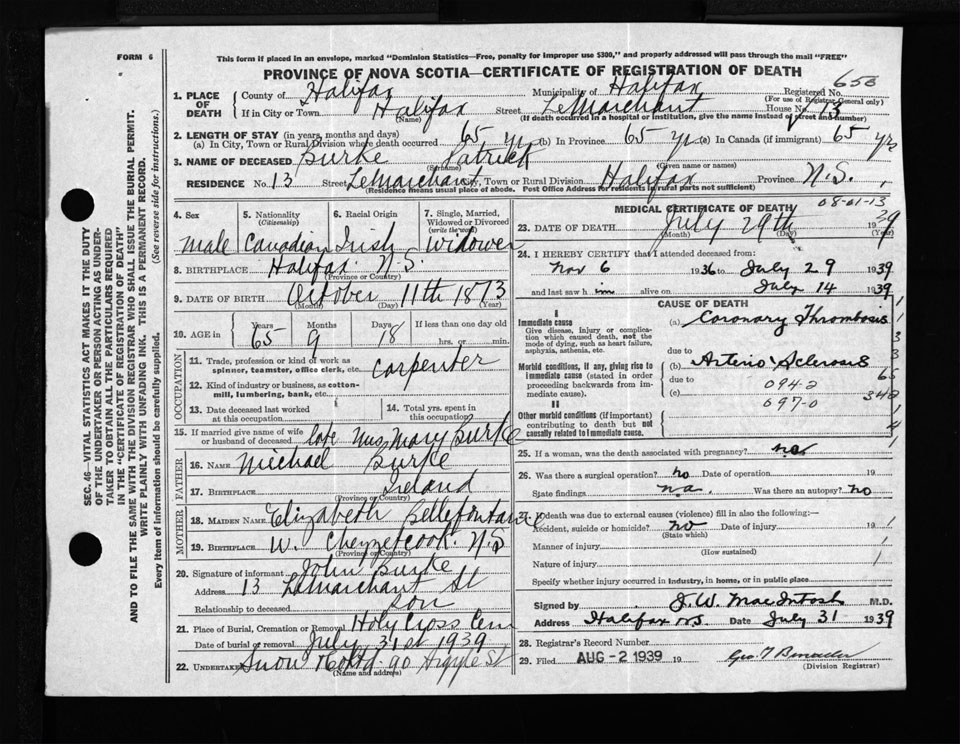 FORM 6
This form if placed in an envelope, marked "Dominion Statistics—Free, penalty for improper use $300," and properly addressed will pass through the mail "FREE"
PROVINCE OF NOVA SCOTIA—CERTIFICATE OF REGISTRATION OF DEATH
1. PLACE OF DEATH County of Halifax Municipality of Halifax Registered No. 658
(For use of Registrar General only)
If in City or Town Halifax Street LeMarchant House No. 13
(Name) (If death occurred in a hospital or institution, give the name instead of street and number)
2. LENGTH OF STAY (in years, months and days)
(a) In City, Town or Rural Division where death occurred 65 yrs (b) In Province 65 yrs (c) In Canada (if immigrant) 65 yrs
3. NAME OF DECEASED Burke Patrick
(Surname) (Given name or names)
RESIDENCE No. 13 Street LeMarchant City, Town or Rural Division Halifax Province N.S.
(Residence means usual place of abode. Post Office Address for residents in rural parts not sufficient)
4. Sex male
5. Nationality (Citizenship) Canadian
6. Racial Origin Irish
7. Single, Married, Widowed or Divorced (write the word) Widower
8. BIRTHPLACE Halifax N.S.
(Province or Country)
9. DATE OF BIRTH October 11th 1873
(Month) (Day) (Year)
10. AGE in Years 65 Months 9 Days 18 If less than one day old hrs. or min.
OCCUPATION
11. Trade, profession or kind of work as spinner, teamster, office clerk, etc. Carpenter
12. Kind of industry or business, as cotton-mill, lumbering, bank, etc.
13. Date deceased last worked at this occupation
14. Total yrs. spent in this occupation
15. If married give name of wife or husband of deceased late Mrs Mary Burke
FATHER
16. Name Michael Burke
17. Birthplace Ireland
(Province or Country)
MOTHER
18. Maiden Name Elizabeth Bellefontaine
19. Birthplace W. Chezzetcook. N.S
(Province or Country)
20. Signature of informant John Burke
Address 13 LeMarchant St
Relationship to deceased Son
21. Place of Burial, Cremation or Removal Holy Cross Cem
Date of burial or removal July 31st 1939
22. Undertaker Snow & Co Ltd. 90 Argyle St
(Name and address)
MEDICAL CERTIFICATE OF DEATH 08-01-13
23. DATE OF DEATH July 29th 1939
(Month) (Day) (Year)
24. I HEREBY CERTIFY that I attended deceased from
Nov 6 1936 to July 29 1939
and last saw him alive on July 14 1939
CAUSE OF DEATH
I
Immediate cause
Give disease, injury or complication which caused death, not the mode of dying, such as heart failure, asphyxia, asthenia, etc.
(a) Coronary Thrombosis
due to
Morbid conditions, if any, giving rise to immediate cause (stated in order proceeding backwards from immediate cause).
(b) Arterio Sclerosis
due to 094-2
(c) 097-0
II
Other morbid conditions (if important) contributing to death but not causally related to immediate cause.
1
3
3
65
348
1
4
25. If a woman, was the death associated with pregnancy? no 1
26. Was there a surgical operation? no Date of operation 19
State findings n.a. Was there an autopsy? no
27. If death was due to external causes (violence) fill in also the following:—
Accident, suicide or homicide? no Date of injury 19 1
(State which)
Manner of injury 1
(How sustained)
Nature of injury 1
Specify whether injury occurred in industry, in home, or in public place
Signed by J. W. MacIntosh M.D.
Address Halifax N.S. Date July 31 1939
28. Registrar's Record Number
29. Filed AUG - 2 1939 19
(Division Registrar)
SEC. 46—VITAL STATISTICS ACT MAKES IT THE DUTY
OF THE UNDERTAKER OR PERSON ACTING AS UNDER-
TAKER TO OBTAIN ALL THE PARTICULARS REQUIRED
IN THE "CERTIFICATE OF REGISTRATION OF DEATH"
AND TO FILE THE SAME WITH THE DIVISION REGISTRAR WHO SHALL ISSUE THE BURIAL PERMIT.
WRITE PLAINLY WITH UNFADING INK. THIS IS A PERMANENT RECORD.
Every item of information should be carefully supplied. (See reverse side for instructions.)